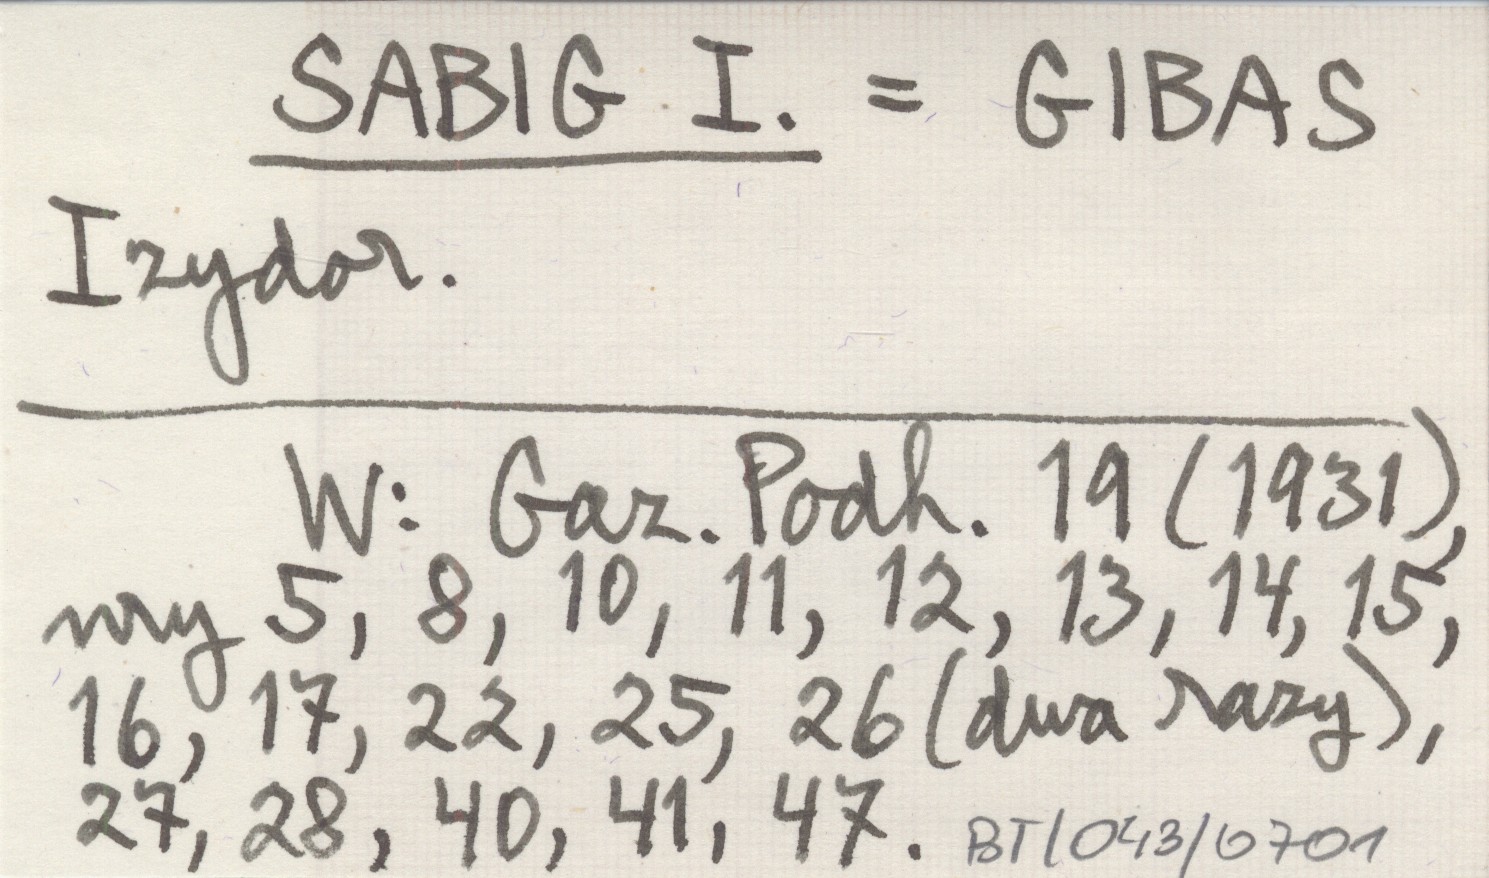 SABIG I. = GIBAS
Izydor.
W: Gaz. Podh. 19 (1931),
nry 5, 8, 10, 11, 12, 13, 14, 15,
16, 17, 22, 25, 26 (dwa razy),
27, 28, 40, 41, 47. BT/043/0701